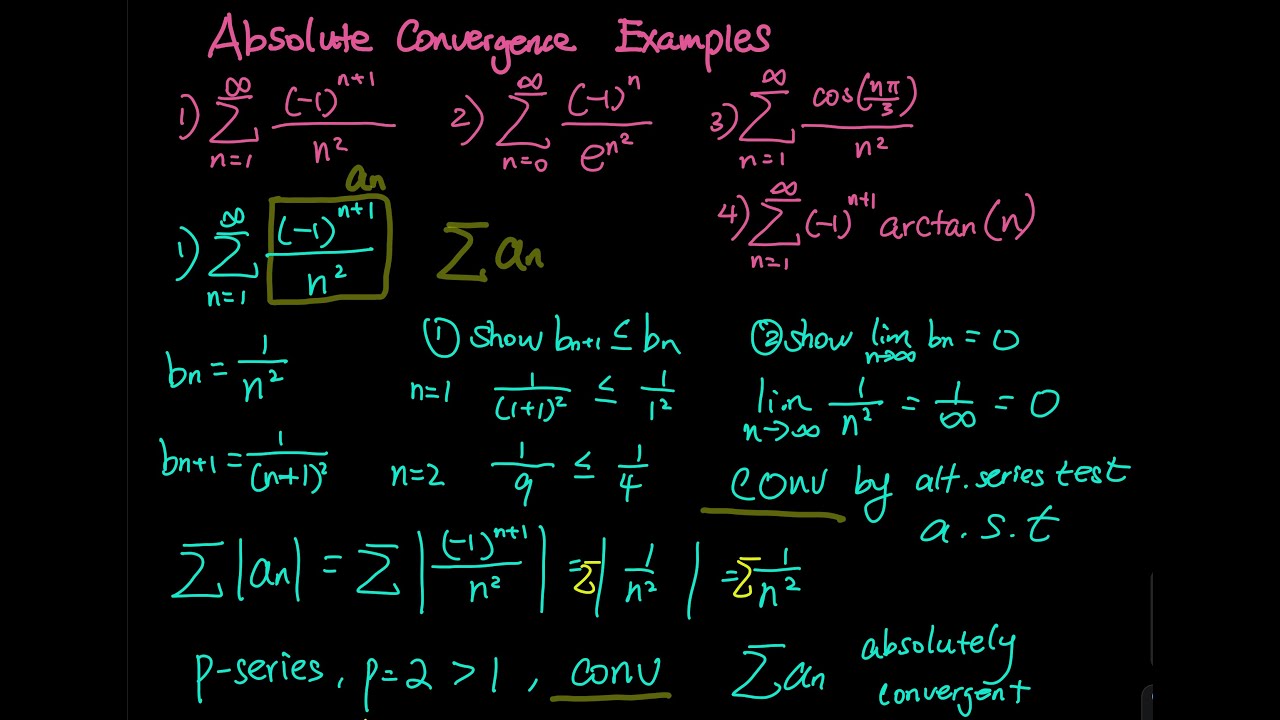 Absolute Convergence Examples
1) ∑_{n=1}^{∞} (-1)^{n+1}/n² 2) ∑_{n=0}^{∞} (-1)^n/e^{n²} 3) ∑_{n=1}^{∞} cos(nπ/3)/n²
4) ∑_{n=1}^{∞} (-1)^{n+1} arctan(n)
an
1) ∑_{n=1}^{∞} (-1)^{n+1}/n² ∑ an
bn = 1/n²
bn+1 = 1/(n+1)²
① show bn+1 ≤ bn
n=1 1/(1+1)² ≤ 1/1²
n=2 1/9 ≤ 1/4
② show lim_{n→∞} bn = 0
lim_{n→∞} 1/n² = 1/∞ = 0
conv by alt. series test
a.s.t
∑ |an| = ∑ |(-1)^{n+1}/n²| = ∑ |1/n²| = ∑ 1/n²
p-series, p=2 >1, conv ∑ an absolutely
convergent